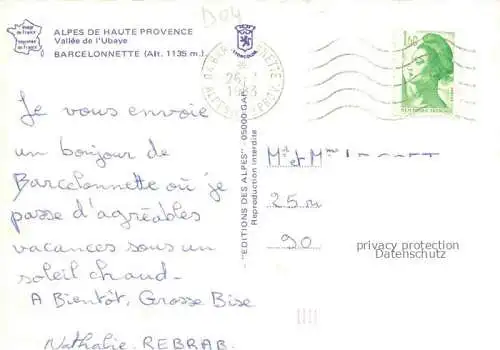 D04
ALPES DE HAUTE PROVENCE
Vallée de l'Ubaye
BARCELONNETTE (Alt. 1135 m.)
image de France
1,60
1983
Je vous envoie
un bonjour de
Barcelonnette où je
passe d'agréables
vacances sous un
soleil chaud.
A Bientôt, Grosse Bise
Nathalie. REBRAB.
"EDITIONS DES ALPES" - 05000 GAP
Reproduction interdite
et
25
90
privacy protection
Datenschutz